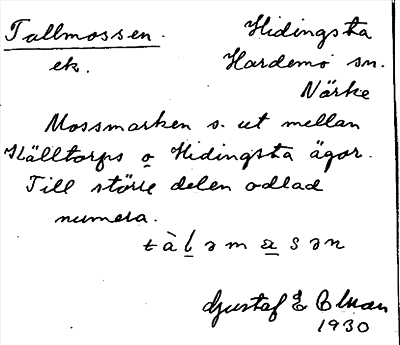 Tallmossen. Hidingsta
ek. Hardemo sn.
Närke
Mossmarken s. ut mellan
Källtorps o Hidingsta ägor.
Till större delen odlad
numera.
Gustaf E
1930